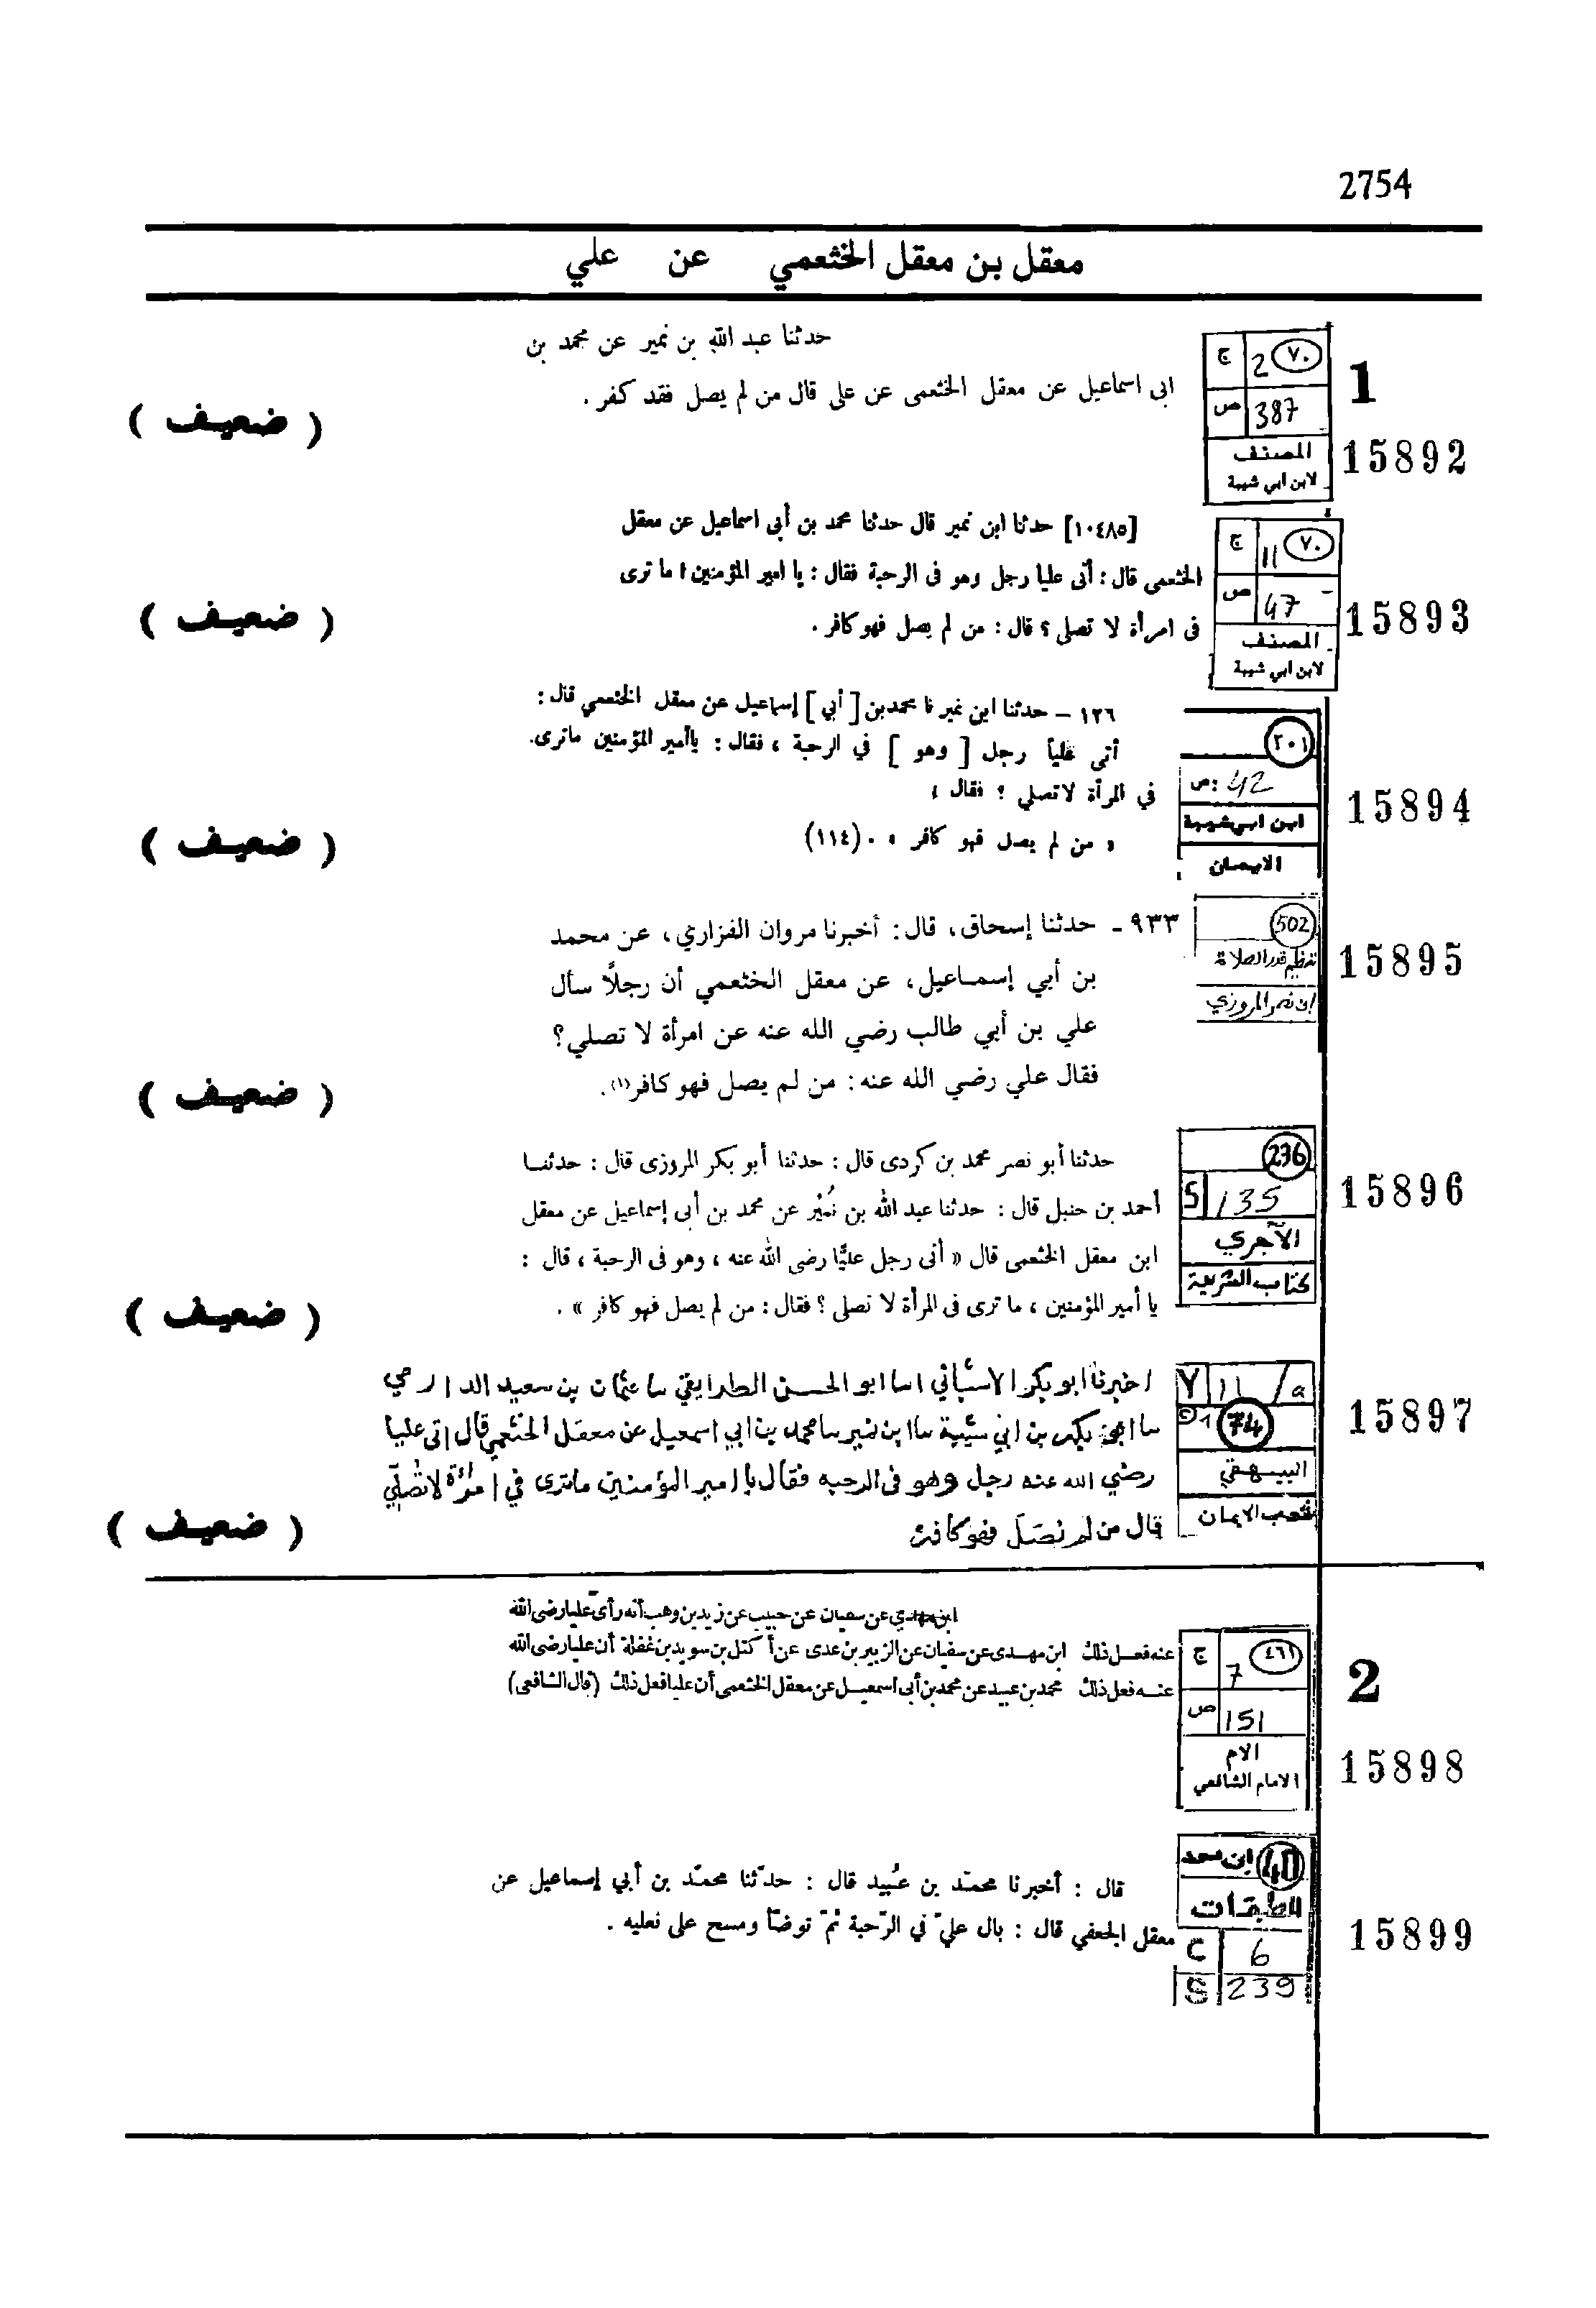 2754
معقل بن معقل الخثعمي عن علي
1
15892
ج 2 ٧٠
ص 387
المصنف
لابن ابي شيبة
حدثنا عبد الله بن نمير عن محمد بن
ابى اسماعيل عن معقل الخثعمى عن على قال من لم يصل فقد كفر .
( ضعيف )
15893
ج 11 ٧٠
ص 47
المصنف
لابن ابي شيبة
[١٠٤٨٥] حدثنا ابن نمير قال حدثنا محمد بن أبى اسماعيل عن معقل
الخثعمى قال : أتى عليا رجل وهو فى الرحبة فقال : يا امير المؤمنين ! ما ترى
فى امرأة لا تصلى ؟ قال : من لم يصل فهو كافر .
( ضعيف )
15894
٢٠١
ص : 42
ابن ابي شيبة
الايمان
١٢٦ – حدثنا ابن نمير نا محمد بن [ أبي ] إسماعيل عن معقل الخثعمي قال :
أتى علياً رجل [ وهو ] في الرحبة ، فقال : ياأمير المؤمنين ماترى
في المرأة لاتصلي ؟ فقال :
« من لم يصل فهو كافر » . (١١٤)
( ضعيف )
15895
502
تعظيم قدر الصلاة
ابن نصر المروزي
٩٣٣ - حدثنا إسحاق، قال: أخبرنا مروان الفزاري، عن محمد
بن أبي إسماعيل، عن معقل الخثعمي أن رجلًا سأل
علي بن أبي طالب رضي الله عنه عن امرأة لا تصلي؟
فقال علي رضي الله عنه: من لم يصل فهو كافر(١).
( ضعيف )
15896
236
S 135
الآجري
كتاب الشريعة
حدثنا أبو نصر محمد بن كردى قال : حدثنا أبو بكر المروزى قال : حدثنا
أحمد بن حنبل قال : حدثنا عبد الله بن نُمَيْر عن محمد بن أبى إسماعيل عن معقل
ابن معقل الخثعمى قال « أتى رجل عليًّا رضى الله عنه ، وهو فى الرحبة ، قال :
يا أمير المؤمنين ، ما ترى فى المرأة لا تصلى ؟ فقال : من لم يصل فهو كافر » .
( ضعيف )
15897
Y 11 / a
1 74
البيهقي
شعب الايمان
اخبرنا ابو بكر الاشناني اسا ابو الحسن الطرايفي سا عثمان بن سعيد الدارمي
سا ابو بكر بن ابي شيبة سا ابن نمير سا محمد بن ابي اسمعيل عن معقل الخثعمي قال اتى عليا
رضي الله عنه رجل وهو فى الرحبه فقال يا امير المؤمنين ماترى في امرأة لا تصلي
قال من لم يصل فهو كافر
( ضعيف )
2
15898
ج 7 ٤٦١
ص 151
الام
الامام الشافعي
ابن مهدي عن سفيان عن حبيب عن زيد بن وهب أنه رأى عليا رضى الله
عنه فعل ذلك ابن مهدى عن سفيان عن الزبير بن عدى عن أكتل بن سويد بن غفلة أن عليا رضى الله
عنه فعل ذلك محمد بن عبيد عن محمد بن أبى اسمعيل عن معقل الخثعمى أن عليا فعل ذلك (قال الشافعى)
15899
ابن سعد 40
الطبقات
C 6
S 239
قال : أخبرنا محمّد بن عُبيد قال : حدّثنا محمّد بن أبي إسماعيل عن
معقل الجعفي قال : بال عليّ في الرّحبة ثمّ توضّأ ومسح على نعليه .